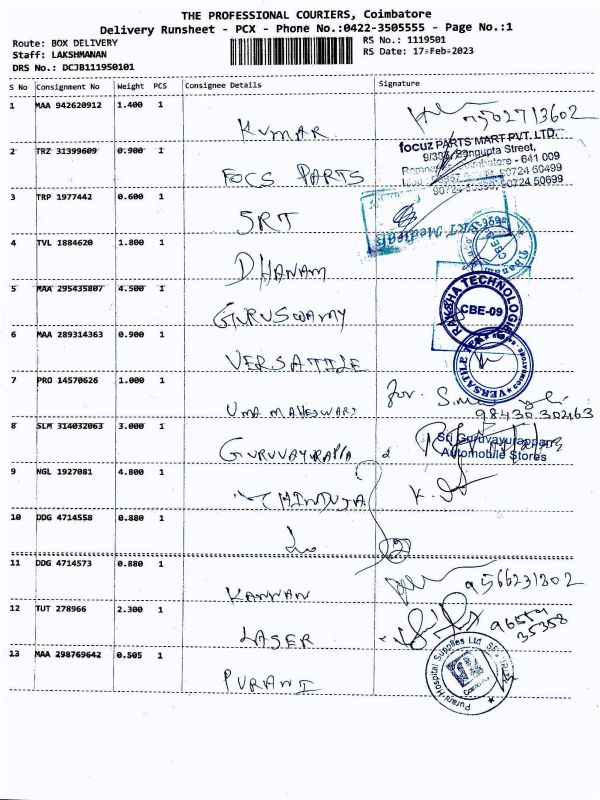 THE PROFESSIONAL COURIERS, Coimbatore
Delivery Runsheet - PCX - Phone No.:0422-3505555 - Page No.:1
Route: BOX DELIVERY RS No.: 1119501
Staff: LAKSHMANAN RS Date: 17-Feb-2023
DRS No.: DCJB111950101
S No Consignment No Weight PCS Consignee Details Signature
1 MAA 942620912 1.400 1
KUMAR 7502713602
focuz PARTS MART PVT. LTD.
2 TRZ 31399609 0.900 1
FOCS PARTS
3 TRP 1977442 0.600 1
SRT
4 TVL 1884620 1.800 1
DHANAM
5 MAA 295435807 4.500 1
GURUSWAMY
RAKSHA TECHNOLOGIE
CBE-09
6 MAA 289314363 0.900 1
VERSATILE
VERSATILE
7 PRO 14570626 1.000 1
UMA MAHESWARI for.
98430 30263
8 SLM 314032063 3.000 1
GURUVAYURAPPA
Sri Guruvayurappan
Automobile Stores
9 NGL 1927081 4.800 1
HINDUJA
10 DDG 4714558 0.880 1
11 DDG 4714573 0.880 1
KANNAN 9566231302
12 TUT 278966 2.300 1
LASER 35358
13 MAA 298769642 0.505 1
PURANI